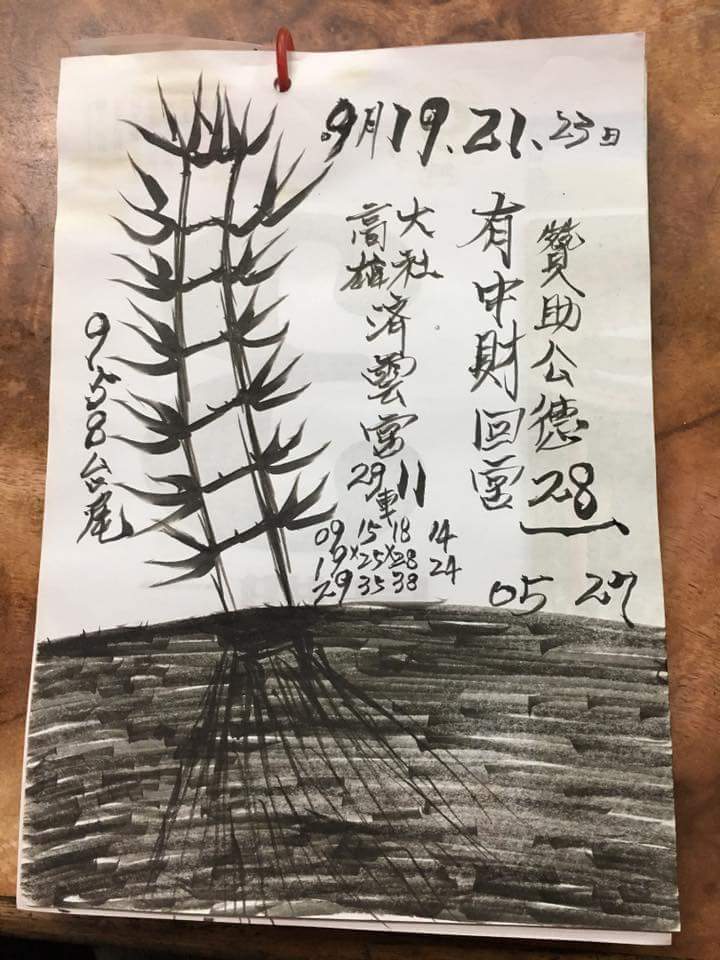 9月19、21、23日
贊助公德28
有中財回宮
05 27
大社
高雄濟雲宮
29車11
09 15 18 14
19×25×28 24
29 35 38
9 5 8 台尾